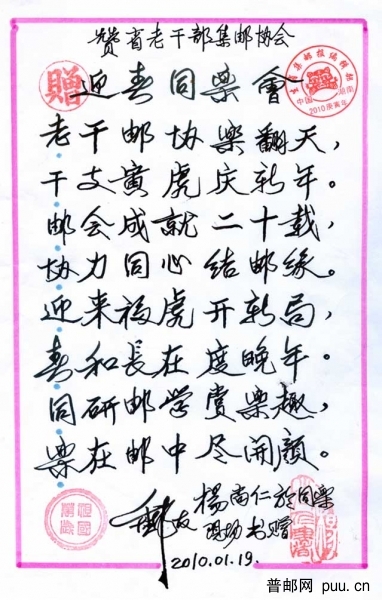 赞省老干部集邮协会
赠
迎春同樂會
2010庚寅年
老干邮协樂翻天，
干支寅虎庆新年。
邮会成就二十载，
协力同心结邮缘。
迎来福虎开新局，
春和長在度晚年。
同研邮学赏樂趣，
樂在邮中尽开颜。
邮友 楊尚仁於同樂
现场书赠
2010.01.19.
普邮网 puu.cn